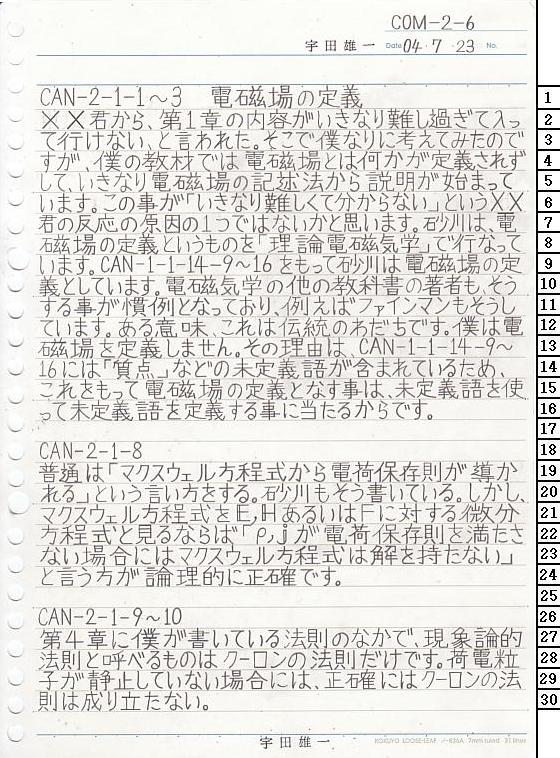 COM-2-6
宇田雄一 Date 04.7.23 No.
CAN-2-1-1～3 電磁場の定義
××君から、第1章の内容がいきなり難し過ぎて入っ
て行けない、と言われた。そこで僕なりに考えてみたので
すが、僕の教材では電磁場とは何かが定義されず
して、いきなり電磁場の記述法から説明が始まって
います。この事が「いきなり難しくて分からない」という××
君の反応の原因の1つではないかと思います。砂川は、電
磁場の定義というものを「理論電磁気学」で行なって
います。CAN-1-1-14-9～16をもって砂川は電磁場の定
義としています。電磁気学の他の教科書の著者も、そう
する事が慣例となっており、例えばファインマンもそうし
ています。ある意味、これは伝統のわだちです。僕は電
磁場を定義しません。その理由は、CAN-1-1-14-9～
16には「質点」などの未定義語が含まれているため、
これをもって電磁場の定義となす事は、未定義語を使
って未定義語を定義する事に当たるからです。
CAN-2-1-8
普通は「マクスウェル方程式から電荷保存則が導か
れる」という言い方をする。砂川もそう書いている。しかし、
マクスウェル方程式をE,HあるいはFに対する微分
方程式と見るならば「ρ,jが電荷保存則を満たさ
ない場合にはマクスウェル方程式は解を持たない」
と言う方が論理的に正確です。
CAN-2-1-9～10
第4章に僕が書いている法則のなかで、現象論的
法則と呼べるものはクーロンの法則だけです。荷電粒
子が静止していない場合には、正確にはクーロンの法
則は成り立たない。
宇田雄一 KOKUYO LOOSE-LEAF ノ-836A 7mm ruled 31 lines
1
2
3
4
5
6
7
8
9
10
11
12
13
14
15
16
17
18
19
20
21
22
23
24
25
26
27
28
29
30